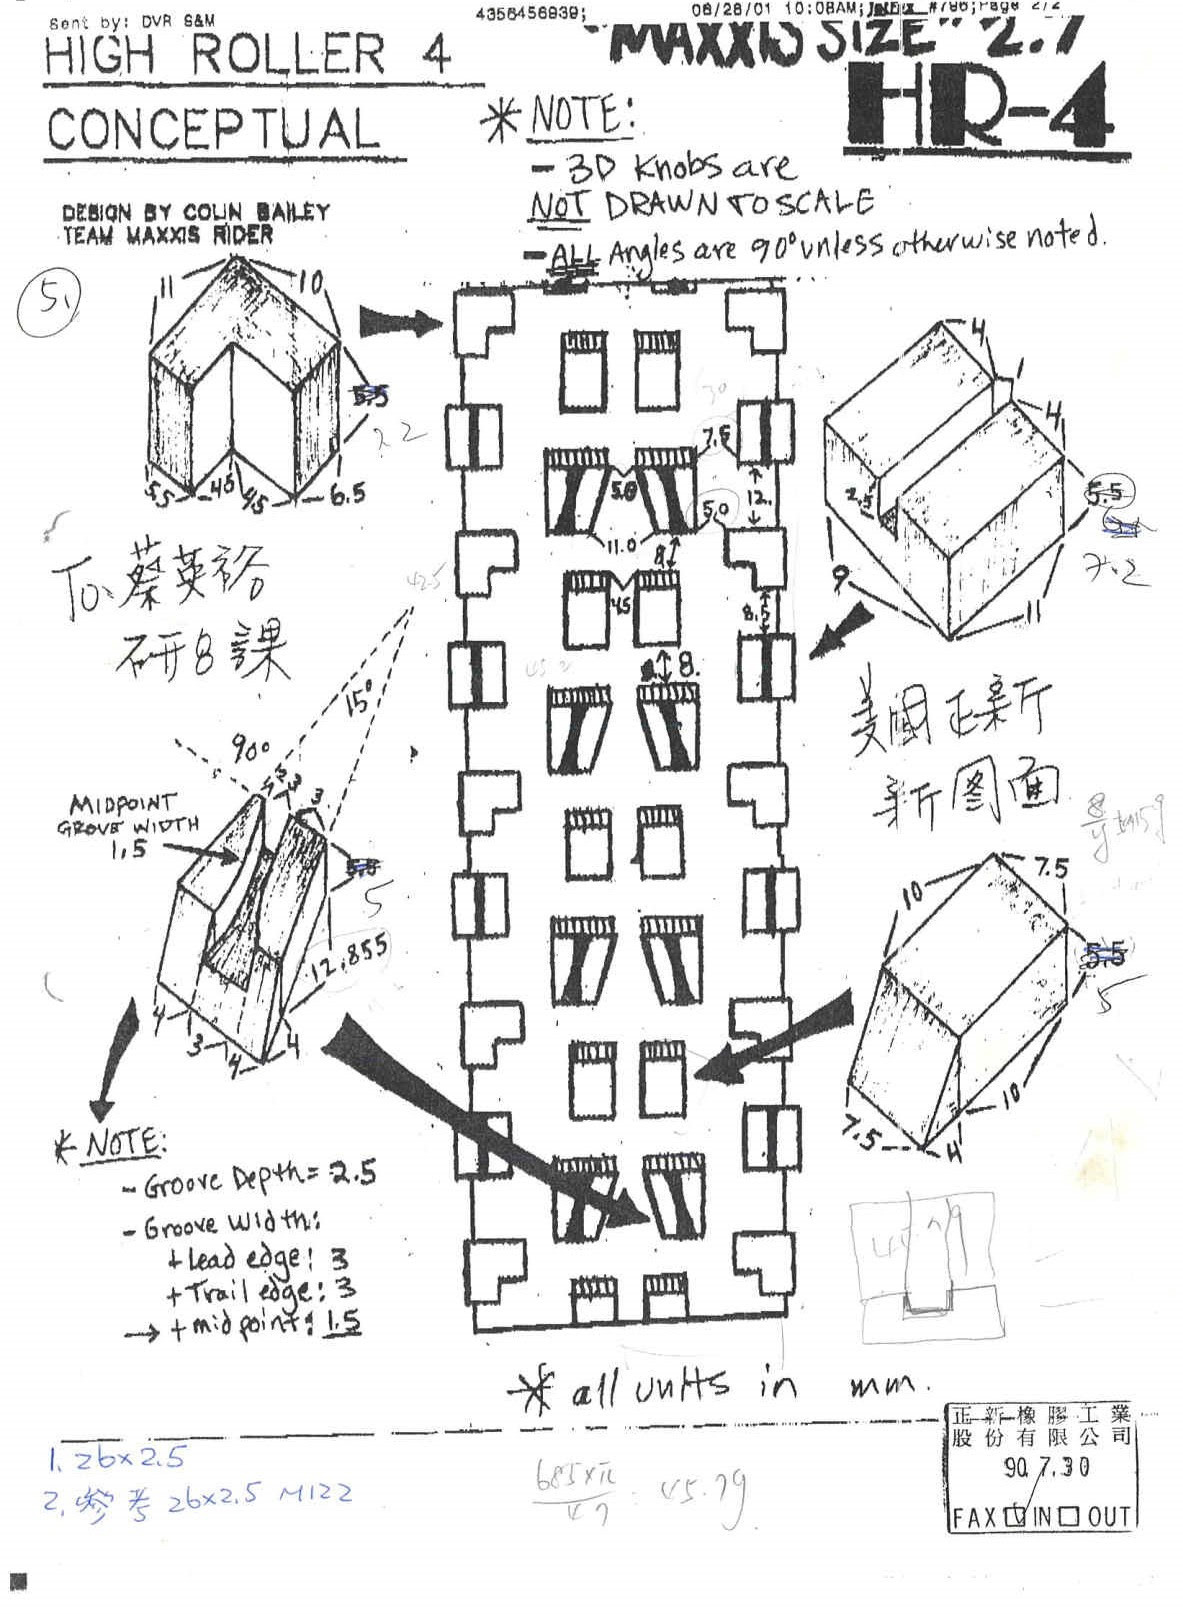 Sent by: DVR S&M
4356456939;
06/28/01 10:08AM; #786; Page 2/2
HIGH ROLLER 4
CONCEPTUAL
DESIGN BY COLIN BAILEY
TEAM MAXXIS RIDER
"MAXXIS SIZE" 2.7
HR-4
* NOTE:
- 3D Knobs are
NOT DRAWN TO SCALE
- ALL Angles are 90° unless otherwise noted.
5.
11
10
5.5
5.5
45
45
6.5
To: 蔡英裕
研8課
7.5
5.0
5.0
12.
11.0
8
45
8.5
8.
4
1
4
2.5
5.5
7.2
9
11
美國正新
新图面
425
15°
90°
MIDPOINT
GROVE WIDTH
1.5
3
3
5.5
5
12.855
4
3
4
4
10
7.5
5.5
5
10
7.5
4
* NOTE:
- Groove Depth = 2.5
- Groove Width:
+ Lead edge: 3
+ Trail edge: 3
→ + mid point: 1.5
* all units in mm.
1. 26x2.5
2. 參考 26x2.5 M122
685×π
47
45.79
正新橡膠工業
股份有限公司
90.7.30
FAX ☑ IN ☐ OUT